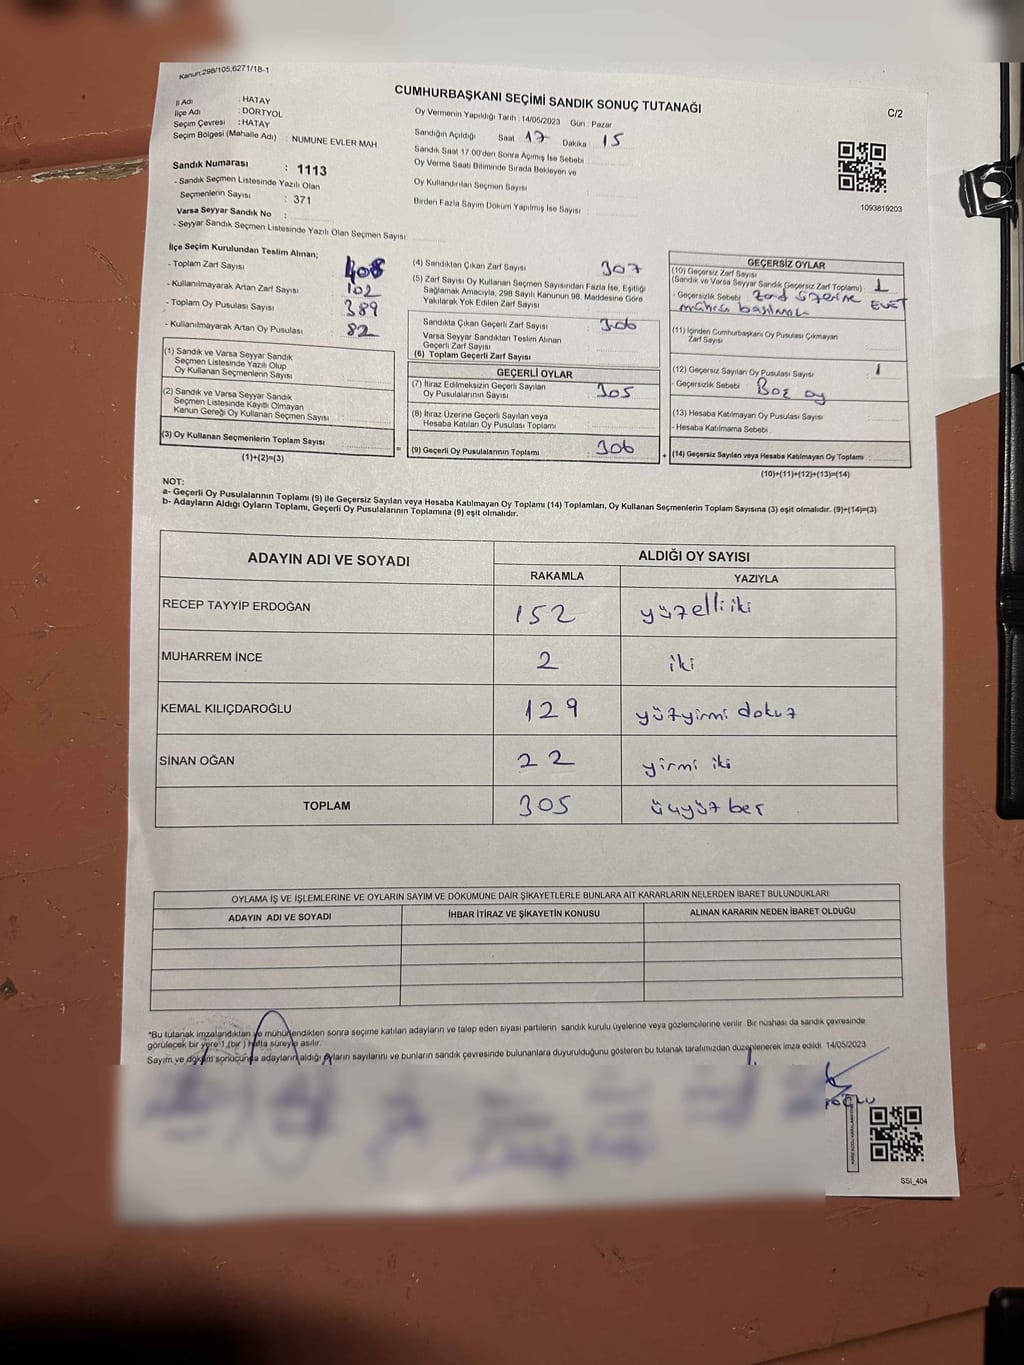 Kanun:298/105,6271/18-1
CUMHURBAŞKANI SEÇİMİ SANDIK SONUÇ TUTANAĞI
C/2
İl Adı : HATAY
İlçe Adı : DÖRTYOL
Seçim Çevresi : HATAY
Seçim Bölgesi (Mahalle Adı) : NUMUNE EVLER MAH
Sandık Numarası : 1113
- Sandık Seçmen Listesinde Yazılı Olan
Seçmenlerin Sayısı : 371
Varsa Seyyar Sandık No :
- Seyyar Sandık Seçmen Listesinde Yazılı Olan Seçmen Sayısı
Oy Vermenin Yapıldığı Tarih : 14/05/2023 Gün : Pazar
Sandığın Açıldığı Saat 17 Dakika 15
Sandık Saat 17:00'den Sonra Açımış İse Sebebi
Oy Verme Saati Bitiminde Sırada Bekleyen ve
Oy Kullandırılan Seçmen Sayısı
Birden Fazla Sayım Döküm Yapılmış İse Sayısı
1093819203
İlçe Seçim Kurulundan Teslim Alınan;
- Toplam Zarf Sayısı 408
- Kullanılmayarak Artan Zarf Sayısı 102
- Toplam Oy Pusulası Sayısı 389
- Kullanılmayarak Artan Oy Pusulası 82
(1) Sandık ve Varsa Seyyar Sandık
Seçmen Listesinde Yazılı Olup
Oy Kullanan Seçmenlerin Sayısı
(2) Sandık ve Varsa Seyyar Sandık
Seçmen Listesinde Kayıtlı Olmayan
Kanun Gereği Oy Kullanan Seçmen Sayısı
(3) Oy Kullanan Seçmenlerin Toplam Sayısı
(1)+(2)=(3)
(4) Sandıktan Çıkan Zarf Sayısı 307
(5) Zarf Sayısı Oy Kullanan Seçmen Sayısından Fazla İse, Eşitliği
Sağlamak Amacıyla, 298 Sayılı Kanunun 98. Maddesine Göre
Yakılarak Yok Edilen Zarf Sayısı
Sandıkta Çıkan Geçerli Zarf Sayısı 306
Varsa Seyyar Sandıktan Teslim Alınan
Geçerli Zarf Sayısı
(6) Toplam Geçerli Zarf Sayısı
GEÇERLİ OYLAR
(7) İtiraz Edilmeksizin Geçerli Sayılan
Oy Pusulalarının Sayısı 305
(8) İtiraz Üzerine Geçerli Sayılan veya
Hesaba Katılan Oy Pusulası Toplamı
= (9) Geçerli Oy Pusulalarının Toplamı 306
GEÇERSİZ OYLAR
(10) Geçersiz Zarf Sayısı
(Sandık ve Varsa Seyyar Sandık Geçersiz Zarf Toplamı) 1
- Geçersizlik Sebebi zarf üzerine EVET
mührü basılması
(11) İçinden Cumhurbaşkanı Oy Pusulası Çıkmayan
Zarf Sayısı
(12) Geçersiz Sayılan Oy Pusulası Sayısı 1
- Geçersizlik Sebebi Boş oy
(13) Hesaba Katılmayan Oy Pusulası Sayısı
- Hesaba Katılmama Sebebi
+ (14) Geçersiz Sayılan veya Hesaba Katılmayan Oy Toplamı
(10)+(11)+(12)+(13)=(14)
NOT:
a- Geçerli Oy Pusulalarının Toplamı (9) ile Geçersiz Sayılan veya Hesaba Katılmayan Oy Toplamı (14) Toplamları, Oy Kullanan Seçmenlerin Toplam Sayısına (3) eşit olmalıdır. (9)+(14)=(3)
b- Adayların Aldığı Oyların Toplamı, Geçerli Oy Pusulalarının Toplamına (9) eşit olmalıdır.
ADAYIN ADI VE SOYADI ALDIĞI OY SAYISI
RAKAMLA YAZIYLA
RECEP TAYYİP ERDOĞAN 152 yüzelli iki
MUHARREM İNCE 2 iki
KEMAL KILIÇDAROĞLU 129 yüzyirmi dokuz
SİNAN OĞAN 22 yirmi iki
TOPLAM 305 üçyüz beş
OYLAMA İŞ VE İŞLEMLERİNE VE OYLARIN SAYIM VE DÖKÜMÜNE DAİR ŞİKAYETLERLE BUNLARA AİT KARARLARIN NELERDEN İBARET BULUNDUKLARI
ADAYIN ADI VE SOYADI İHBAR İTİRAZ VE ŞİKAYETİN KONUSU ALINAN KARARIN NEDEN İBARET OLDUĞU
*Bu tutanak imzalandıktan ve mühürlendikten sonra seçime katılan adayların ve talep eden siyasi partilerin sandık kurulu üyelerine veya gözlemcilerine verilir. Bir nüshası da sandık çevresinde
görülecek bir yere 1 (bir) hafta süreyle asılır.
Sayım ve döküm sonucunda adayların aldığı oyların sayılarını ve bunların sandık çevresinde bulunanlara duyurulduğunu gösteren bu tutanak tarafımızdan düzenlenerek imza edildi. 14/05/2023
SSI_404